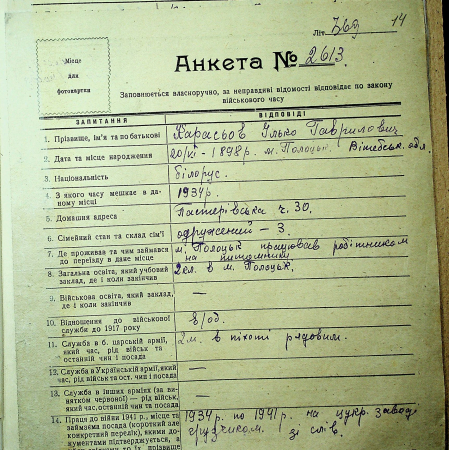 14
Літ.
Місце
для
фотокартки
Анкета № 2613.
Заповнюється власноручно, за неправдиві відомості відповідає по закону
військового часу
ЗАПИТАННЯ ВІДПОВІДІ
1. Прізвище, ім'я та по батькові Карасьов Ілько Гаврилович
2. Дата та місце народження 20/VI - 1898 р. м. Полоцьк. Вітебськ. обл.
3. Національність білорус.
4. З якого часу мешкає в да-
ному місці 1934 р.
5. Домашня адреса Пастерівська ч. 30.
6. Сімейний стан та склад сім'ї одружений - 3.
7. Де проживав та чим займався
до переїзду в дане місце м. Полоцьк працював робітником
на
8. Загальна освіта, який учбовий
заклад, де і коли закінчив 2 кл. в м. Полоцьк.
9. Військова освіта, який заклад,
де і коли закінчив —
10. Відношення до військової
служби до 1917 року в/об.
11. Служба в б. царській армії,
який час, рід військ та
останній чин і посада 2 м. в піхоті рядовим.
12. Служба в Українській армії, який
час, рід військ та ост. чин і посада —
13. Служба в інших арміях (за ви-
нятком червоної) — рід військ,
який час, останній чин та посада —
14. Праця до війни 1941 р., місце та
займаєма посада (короткий але
конкретний перелік), якими до-
кументами підтверджується, а
1934 р. по 1941 р. на цукр. заводі
грузчиком. зі слів.